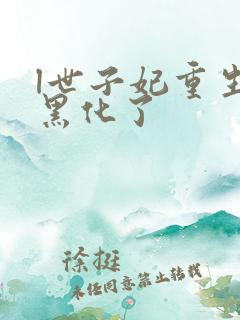 1世子妃重生
黑化了
徐挺
未经同意禁止转载